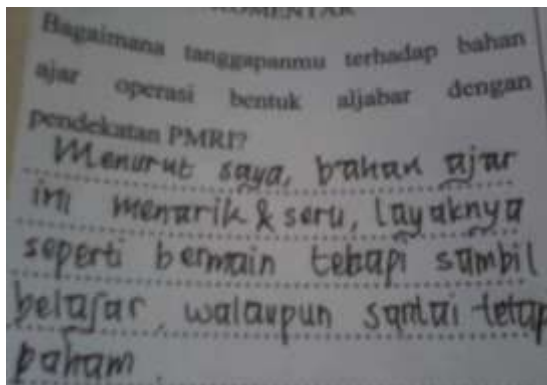 KOMENTAR
Bagaimana tanggapanmu terhadap bahan
ajar operasi bentuk aljabar dengan
pendekatan PMRI?
Menurut saya, bahan ajar
ini menarik & seru, layaknya
seperti bermain tetapi sambil
belajar, walaupun santai tetap
paham.